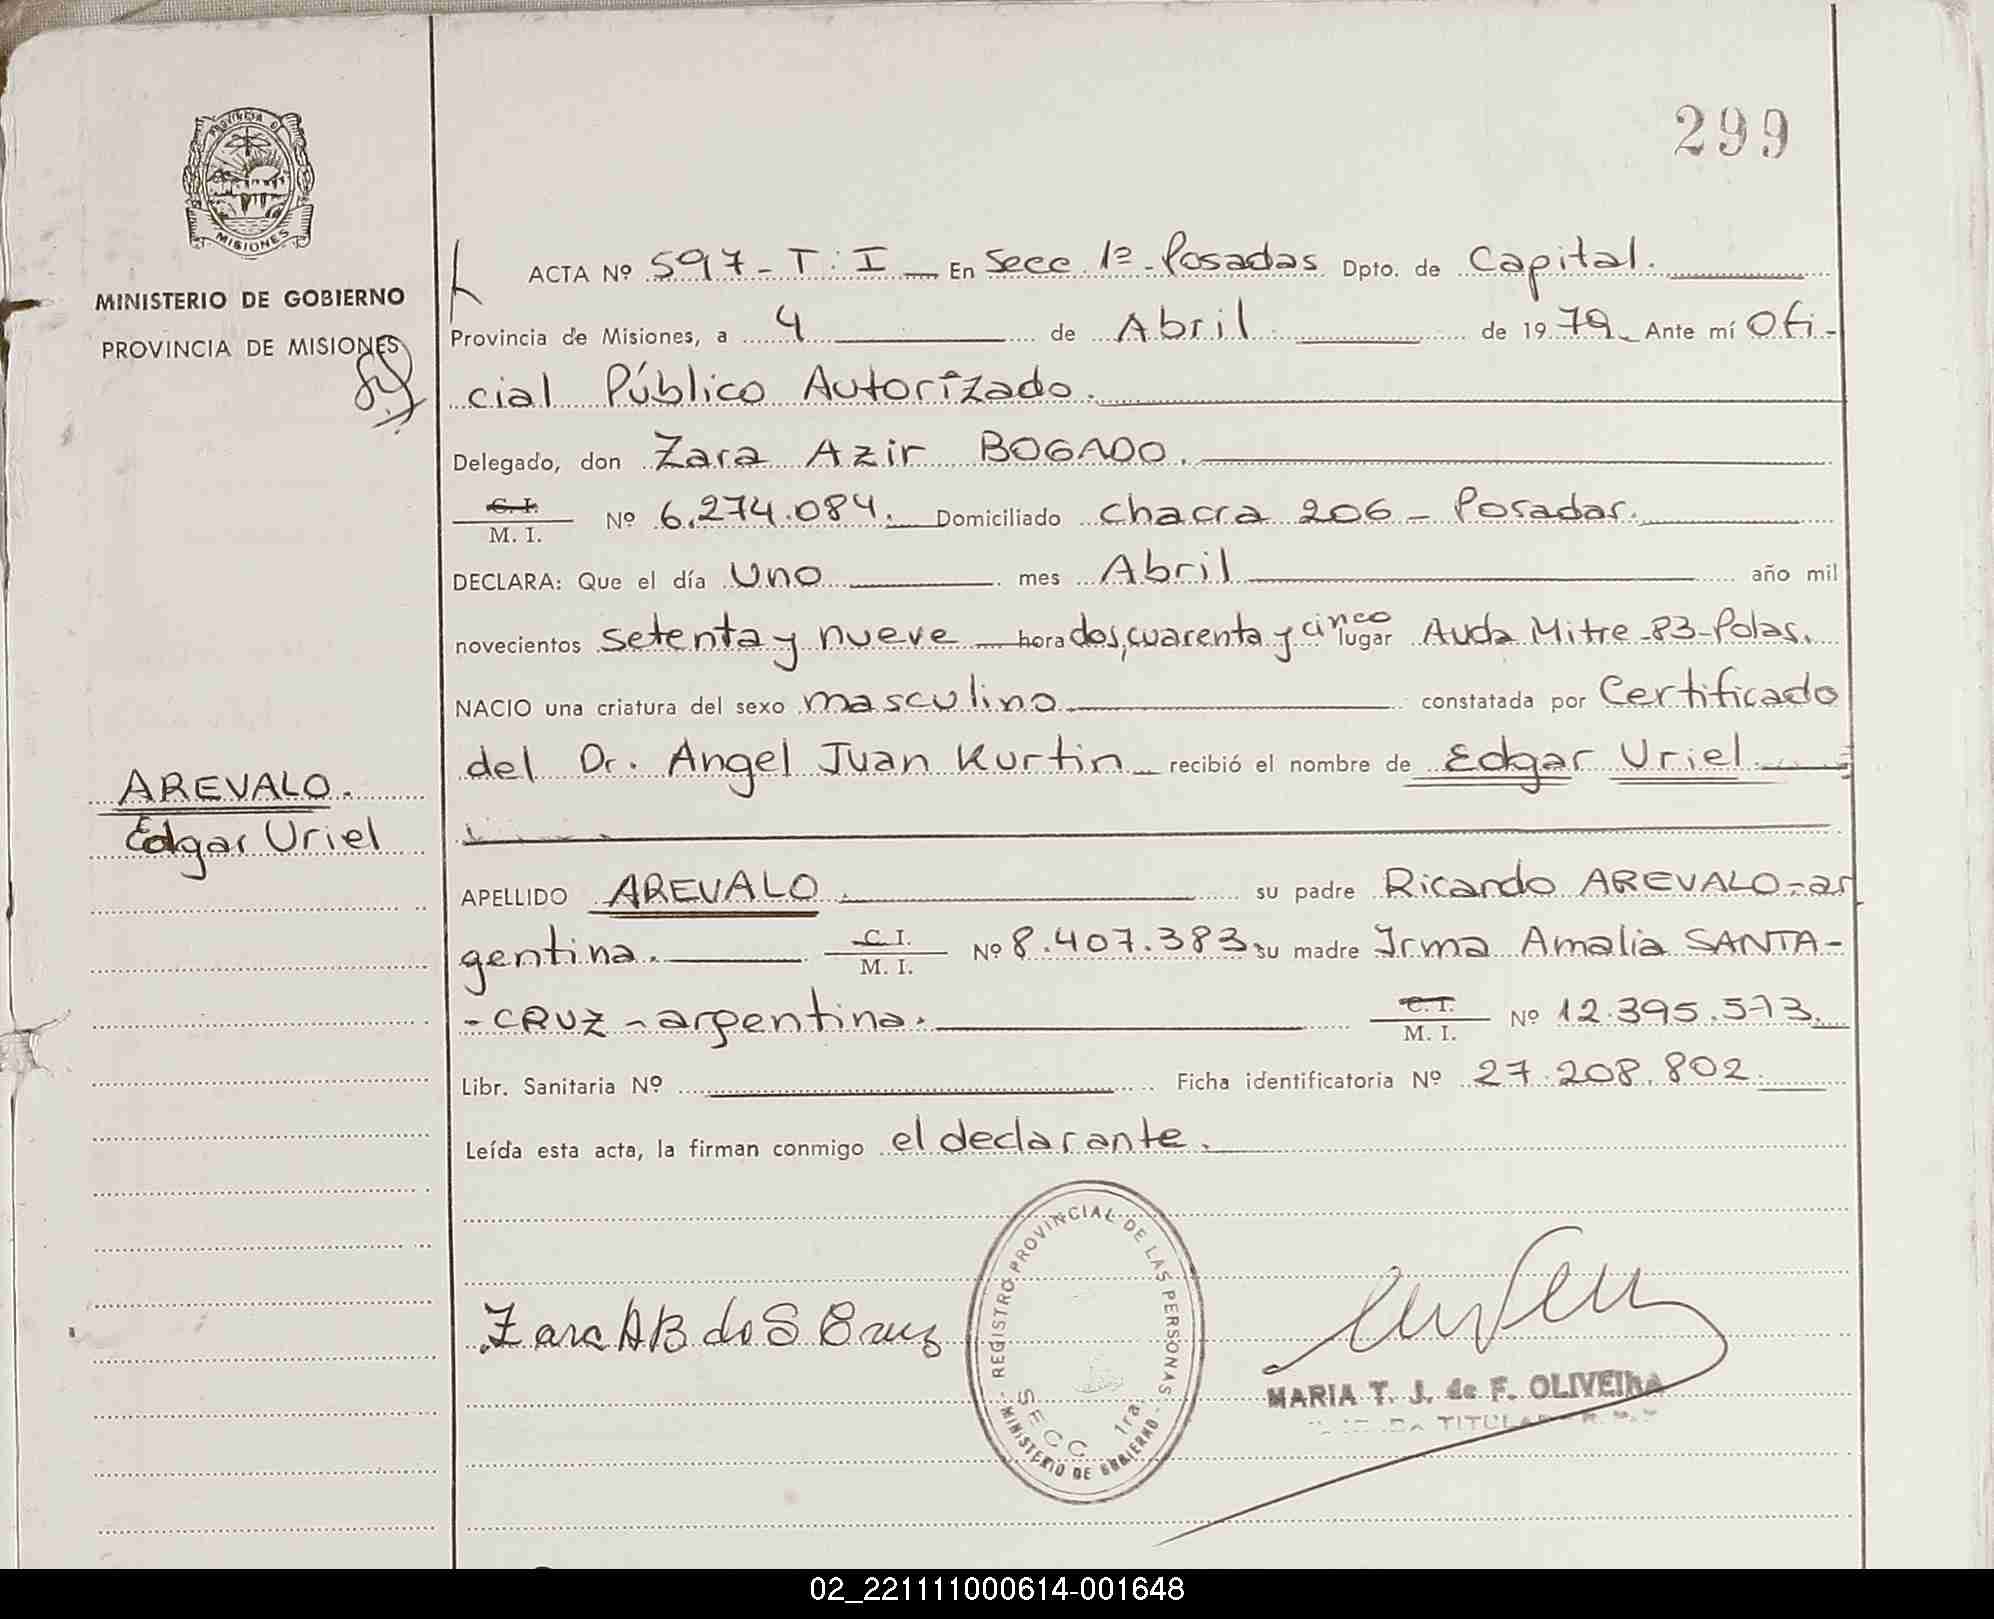 299
Provincia de
MISIONES
MINISTERIO DE GOBIERNO
PROVINCIA DE MISIONES
AREVALO.
Edgar Uriel
ACTA Nº 597-T:I En Secc 1ª-Posadas Dpto. de Capital.
Provincia de Misiones, a 4 de Abril de 1979 Ante mí Ofi-
cial Público Autorizado.
Delegado, don Zara Azir BOGADO.
C. I. / M. I. Nº 6.274.084. Domiciliado chacra 206 - Posadas.
DECLARA: Que el día Uno mes Abril año mil
novecientos setenta y nueve hora dos, cuarenta y cinco lugar Avda Mitre-83-Pdas.
NACIO una criatura del sexo masculino constatada por Certificado
del Dr. Angel Juan Kurtin recibió el nombre de Edgar Uriel
APELLIDO AREVALO. su padre Ricardo AREVALO-ar
gentina. C. I. / M. I. Nº 8.407.383. su madre Irma Amalia SANTA-
-CRUZ-argentina. C. I. / M. I. Nº 12.395.573.
Libr. Sanitaria Nº Ficha identificatoria Nº 27.208.802.
Leída esta acta, la firman conmigo el declarante.
REGISTRO PROVINCIAL DE LAS PERSONAS
SECC. 1ra.
MINISTERIO DE GOBIERNO
Zara AB de S Cruz
MARIA T. J. de F. OLIVEIRA
TITULAR
02_221111000614-001648